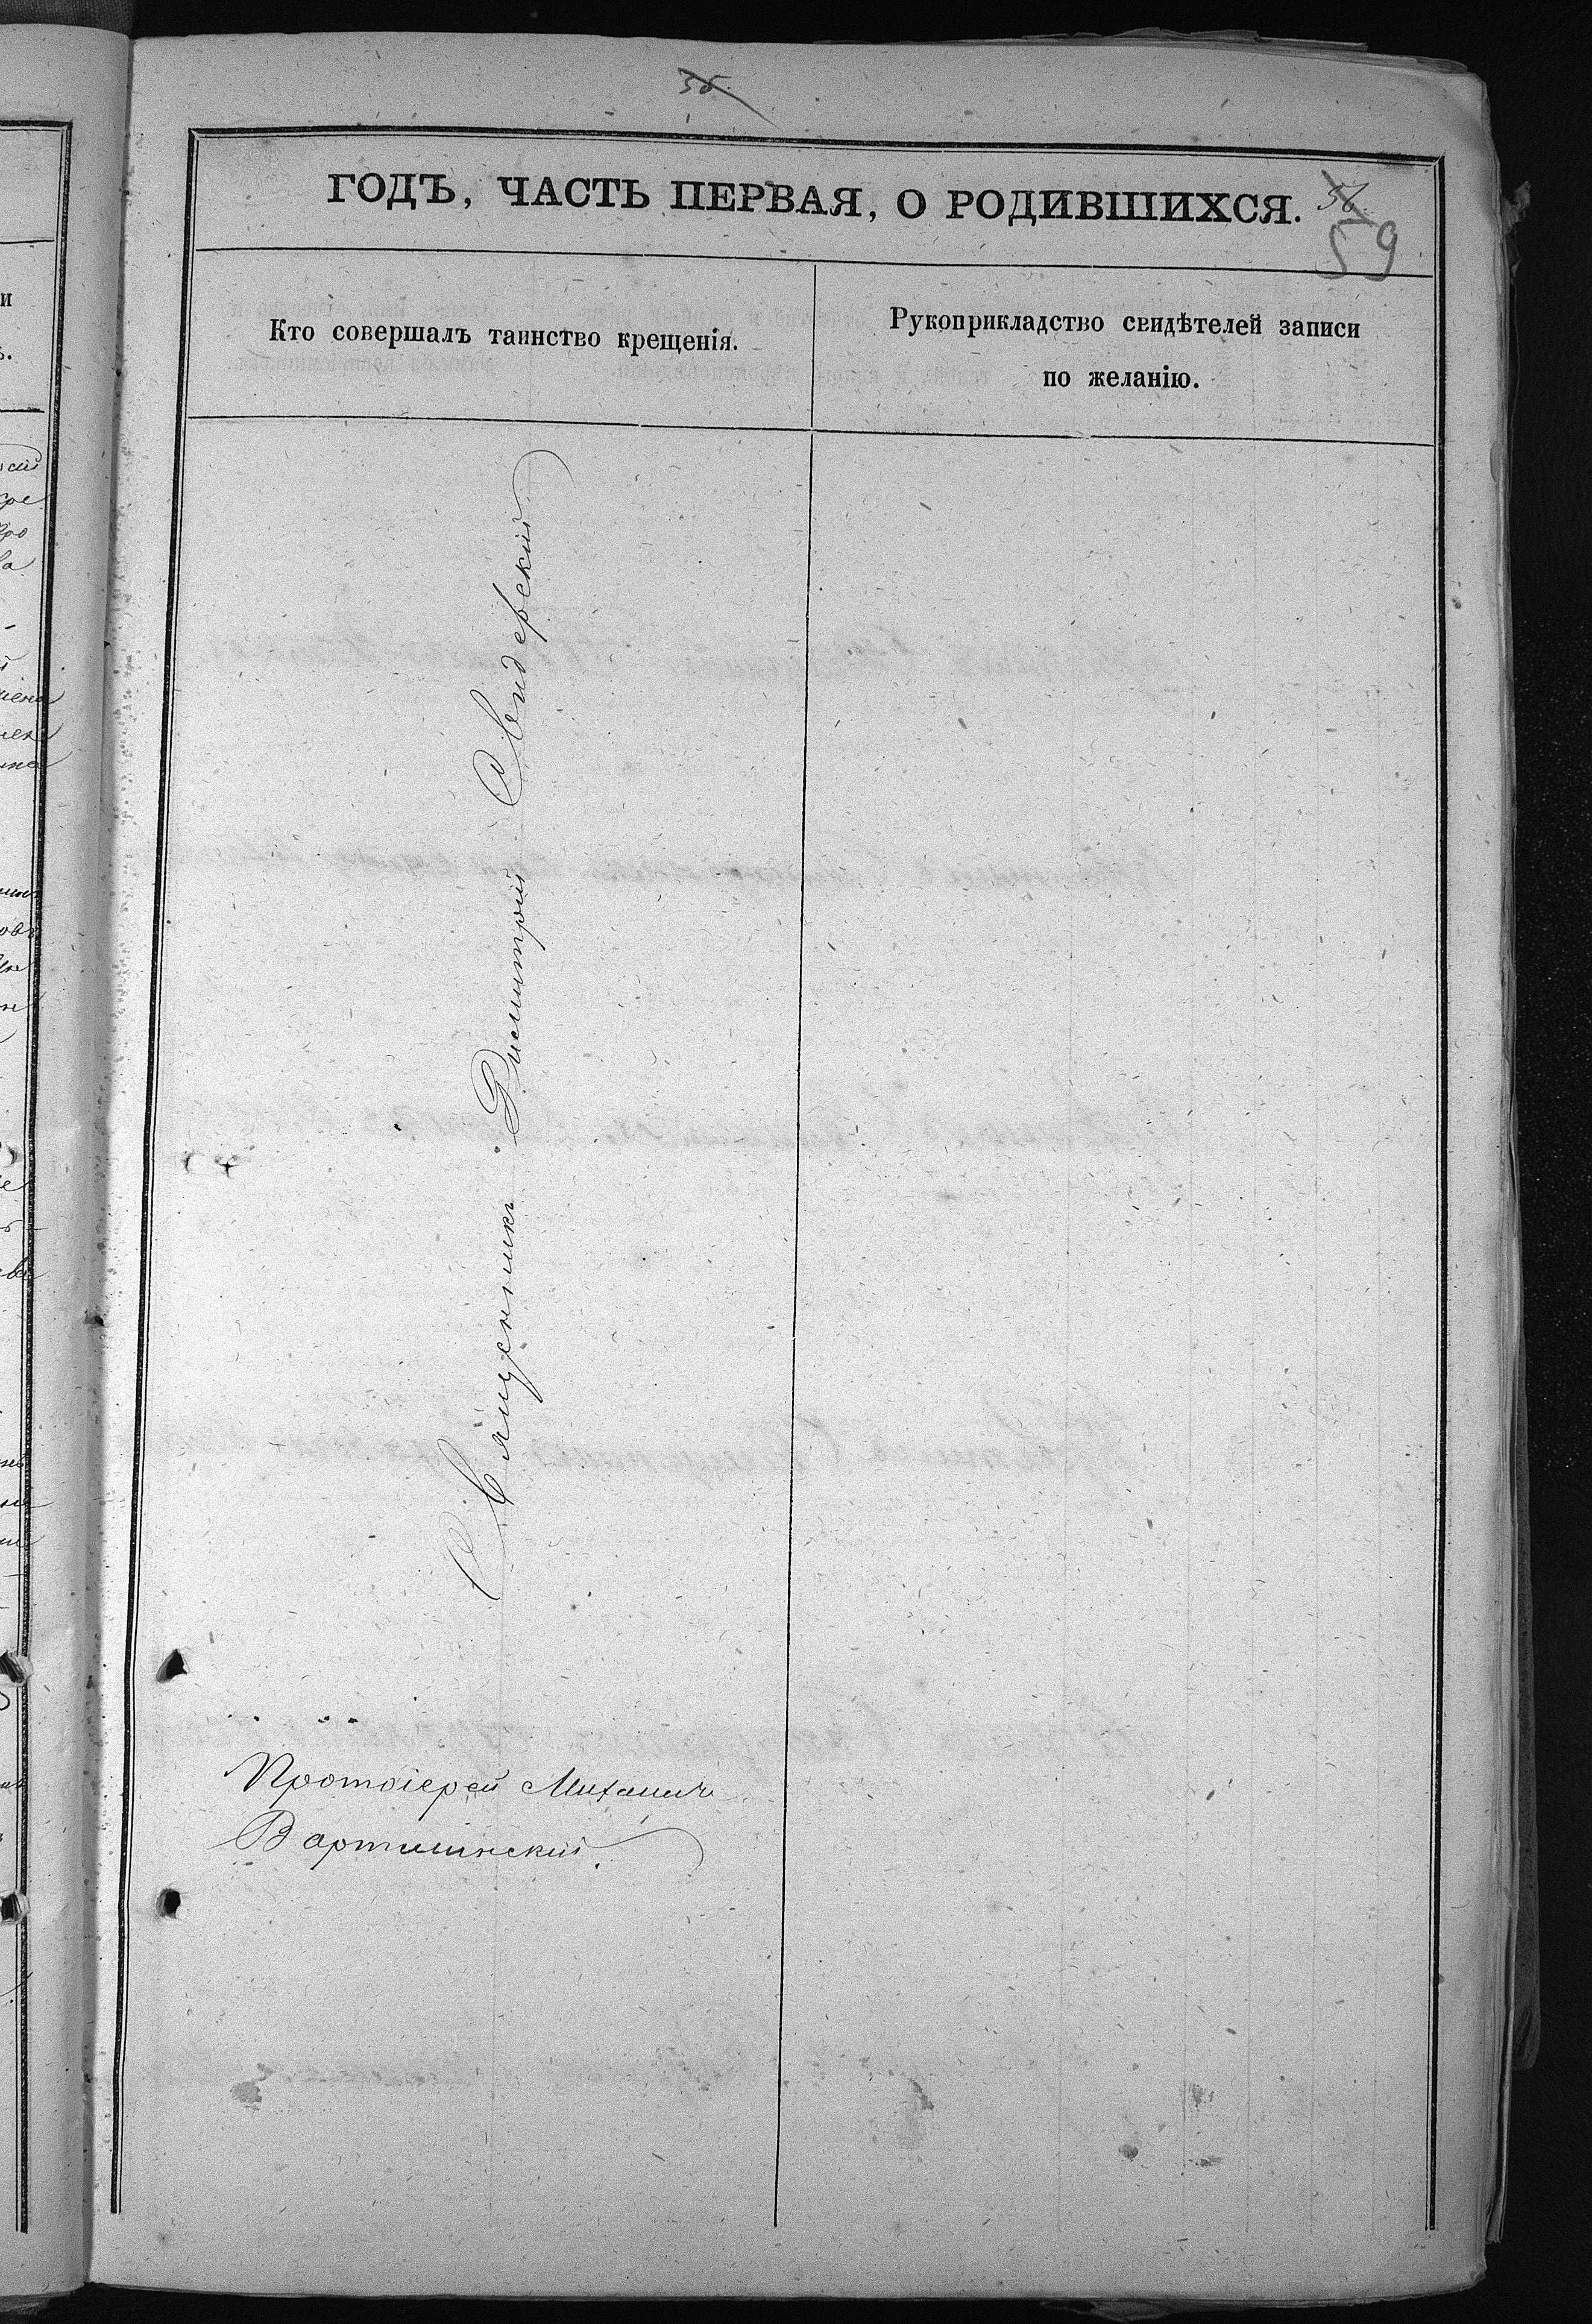 36.
ГОДЪ, ЧАСТЬ ПЕРВАЯ, О РОДИВШИХСЯ.
59
Кто совершалъ таинство крещенія.
Рукоприкладство свидѣтелей записи
по желанію.
Священникъ Димитрій Свидерскій
Протоіерей Михаилъ
Вартминскій.